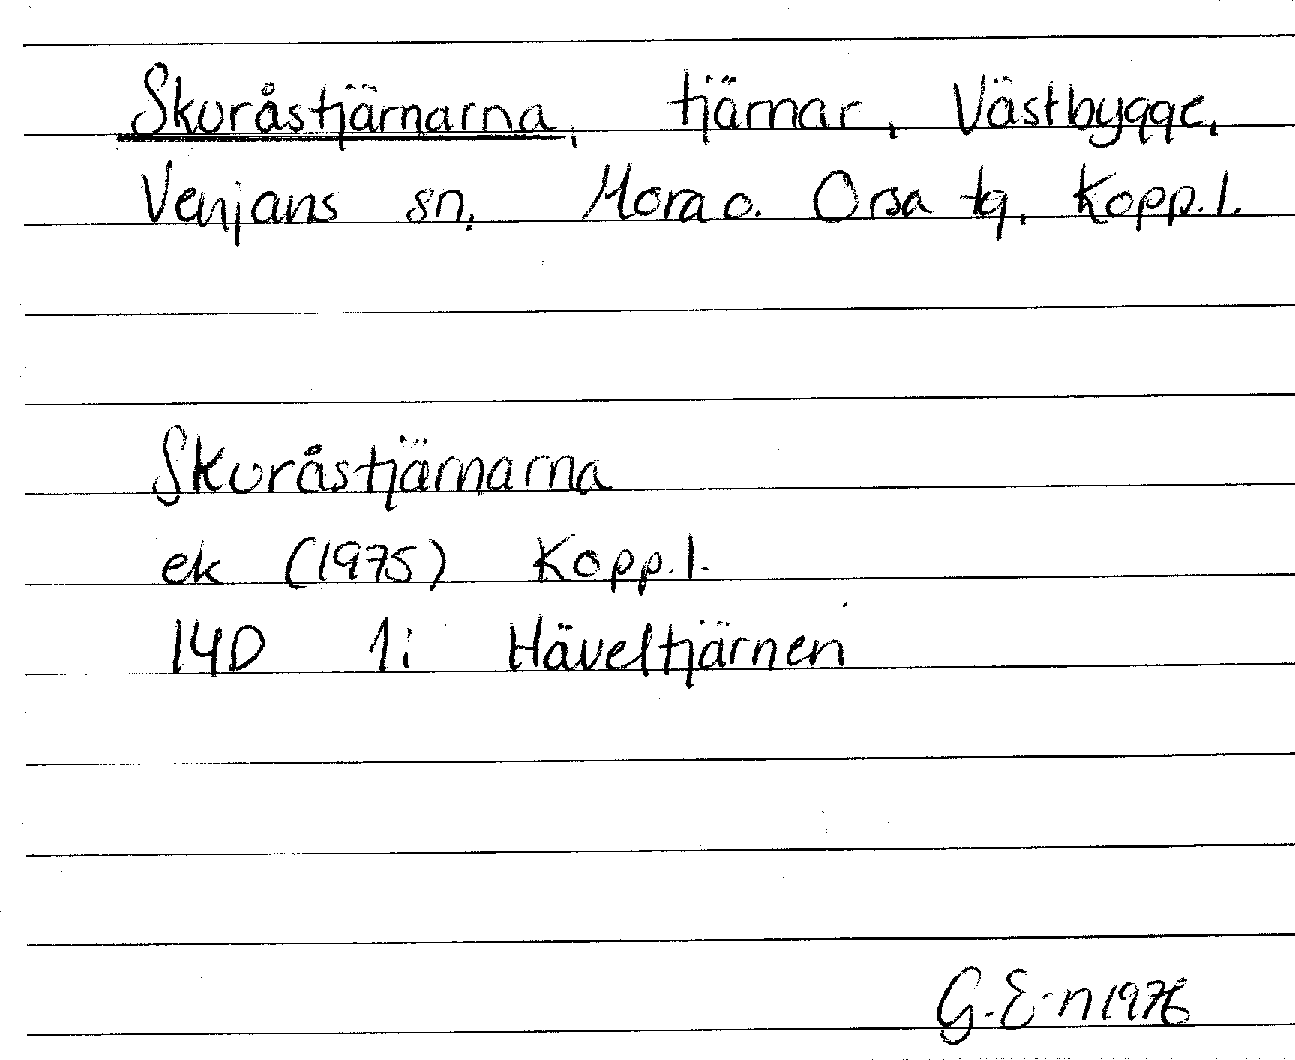 Skuråstjärnarna, tjärnar, Västbygge,
Venjans sn, Mora o. Orsa tg, Kopp.l.
Skuråstjärnarna
ek (1975) Kopp.l.
14D 1i Häveltjärnen
G.E-n 1976